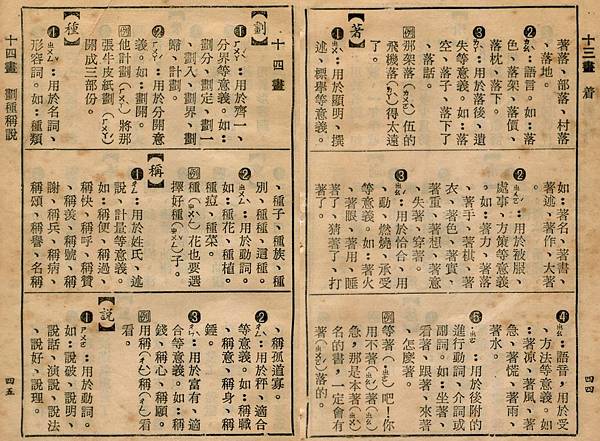 十三畫　着
著落、部落、村落
、落地。
❷：語言。如：落
色、落架、落價、
落枕、落下。
❸：用於落後、遺
失等意義。如：落
空、落子、落下了
、落話。
例那架落(ㄌㄨㄛˋ)伍的
飛機落(ㄌㄚˋ)得太遠
了。
【著】
❶ㄓㄨˋ：用於顯明、撰
述、標舉等意義。
如：著名、著書、
著述、著作、大著
。
❷：用於被服、
處事、方策等意義
。如：著力、著落
、著手、著棋、著
衣、著色、著實、
著重、著想、著意
、失著、穿著。
❸ㄓㄠˊ：用於恰合、用
、動、燃燒、承受
等意義。如：著火
、著眼、著用、睡
著了、猜著了、打
著了。
❹ㄓㄠ：語音，用於受
、方法等意義。如
：著凉、著風、著
急、著慌、著雨、
著水。
：用於後附的
進行動詞、介詞或
副詞。如：坐著、
看著、跟著、來著
、怎麼著。
例等著(˙ㄓㄜ)吧！你
用不著(ㄓㄠˊ)著(ㄓㄠ)
急，那是本著(ㄓㄨˋ)
名的書，一定會有
著(ㄓㄨㄛˊ)落的。
四四
十四畫
【劃】
❶ㄏㄨㄚˋ：用於齊一、
分界等意義。如：
劃分、劃定、劃一
、劃入、劃界、劃
歸、計劃。
❷ㄏㄨㄚˊ：用於分開意
義。如：劃開。
例他計劃(ㄏㄨㄚˋ)將那
張牛皮紙劃(ㄏㄨㄚˊ)
開成三部份。
【種】
❶ㄓㄨㄥˇ：用於名詞、
形容詞。如：種類
、種子、種族、種
別、種種、這種。
❷ㄓㄨㄥˋ：用於動詞。
如：種花、種植。
種痘、種菜。
例種(ㄓㄨㄥˋ)花也要選
擇好種(ㄓㄨㄥˇ)子。
【稱】
❶ㄔㄥ：用於姓氏、述
說、計量等意義。
如：稱便、稱過、
稱快、稱呼、稱贊
、稱羨、稱號、稱
謝、稱兵、稱病、
稱頌、稱譽、名稱
、稱孤道寡。
❷ㄔㄣˋ：用於秤、適合
等意義。如：稱職
、稱意、稱身、稱
錘。
❸ㄔㄥˋ：用於富有、適
合等意義。如：稱
錢、稱心、稱願。
例用稱(ㄔㄥˋ)稱(ㄔㄥ)看
看。
【說】
❶ㄕㄨㄛ：用於動詞。
如：說破、說明、
說話、演說、說法
、說好、說理。
十四畫　劃種稱說
四五